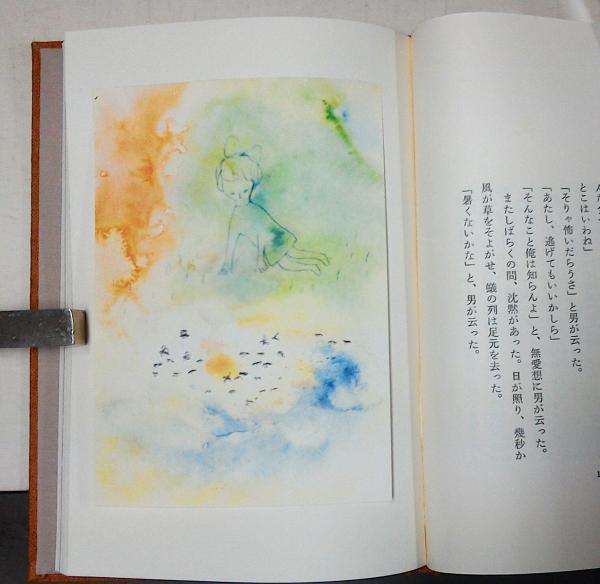 とこはいわね」
「そりゃ怖いだらうさ」と男が云った。
「あたし、逃げてもいいかしら」
「そんなこと俺は知らんよ」と、無愛想に男が云った。
またしばらくの間、沈黙があった。日が照り、幾秒か
風が草をそよがせ、蟻の列は足元を去った。
「暑くないかな」と、男が云った。